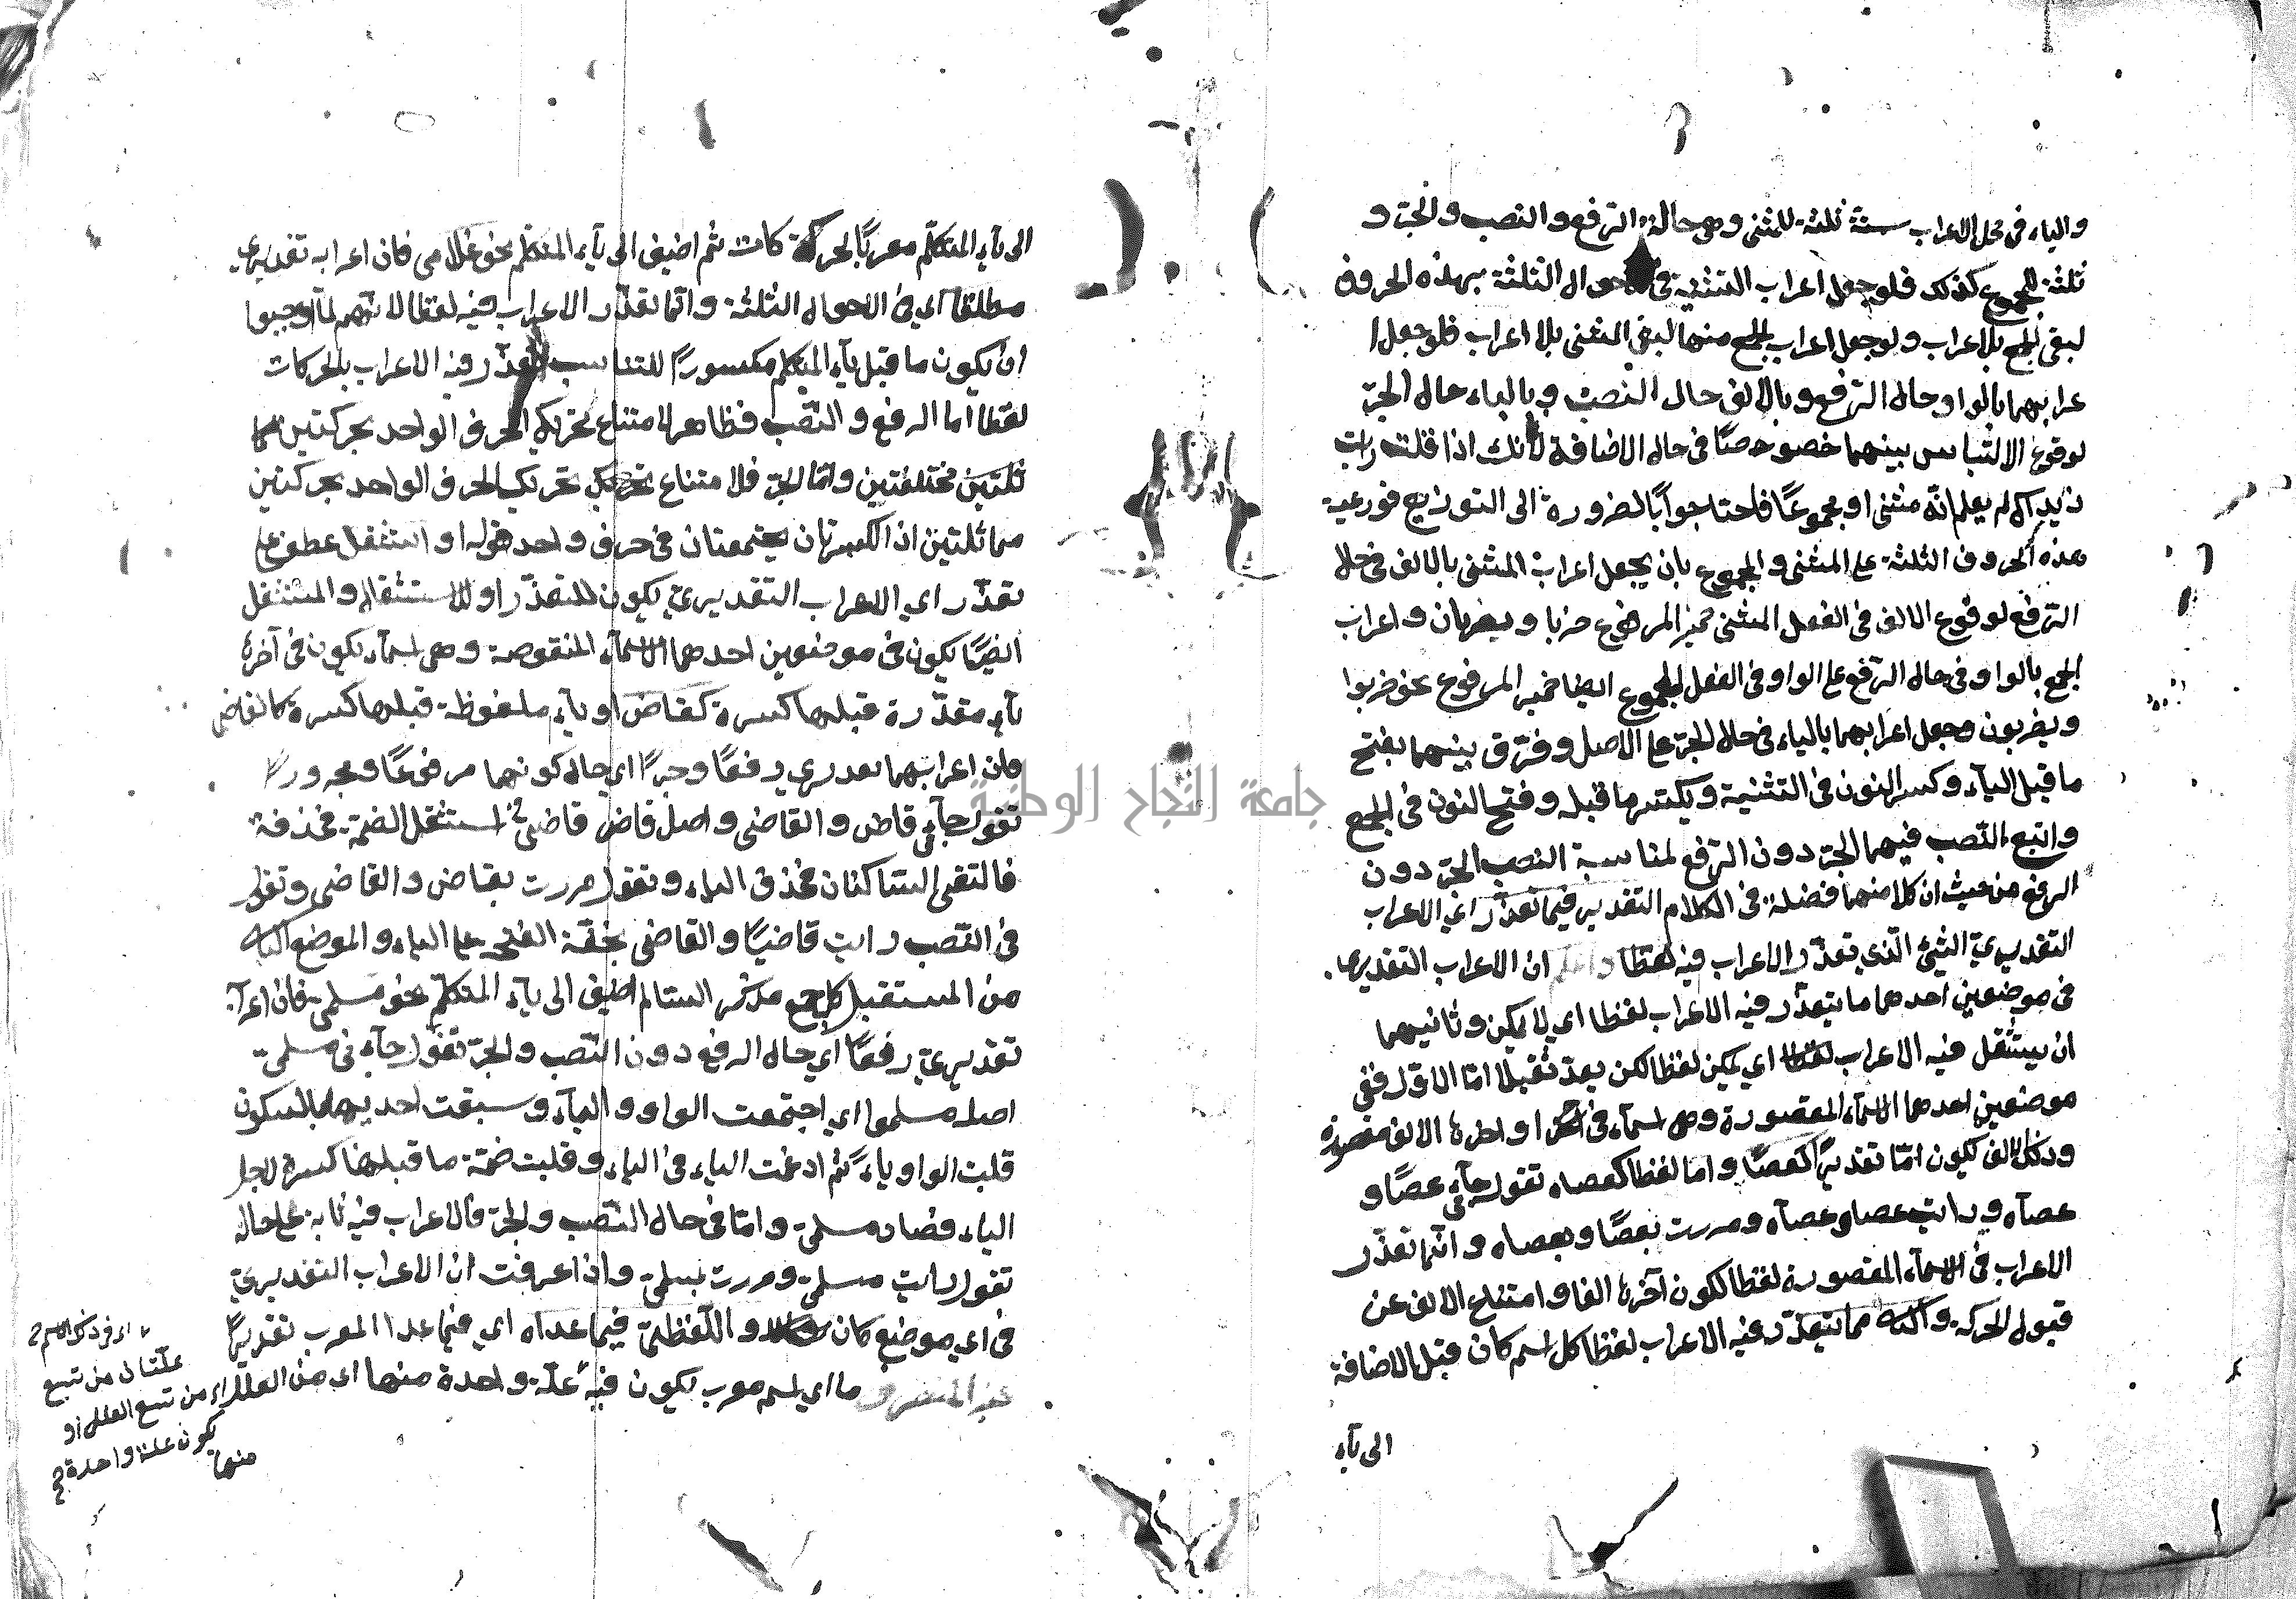 والياء في محل الاعراب ستة ثلثة للمثنى وهي حالة الرفع والنصب والجر و
ثلثة للجموع كذلك فلو جعل اعراب التثنية في احوال الثلثة بهذه الحروف
لبقى الجمع بلا اعراب ولو جعل اعراب الجمع منها لبقى المثنى بلا اعراب فلو جعل ا
عرابهما بالواو حال الرفع وبالالف حال النصب وبالياء حال الجر
لوقوع الالتباس بينهما خصوصا في حال الاضافة لانك اذا قلت رايت
زيداك لم يعلم انه مثنى او مجموعا فاحتاجوا بالضرورة الى التوزيع فوزعت
هذه الحروف الثلثة على المثنى والمجموع بان يجعل اعراب المثنى بالالف في حال
الرفع لوقوع الالف في الفعل المثنى ضمير المرفوع ضربا ويضربان واعراب
الجمع بالواو في حال الرفع على الواو في الفعل المجموع ايضا ضمير المرفوع نحو ضربوا
ويضربون وجعل اعرابهما بالياء في حال الجر على الاصل وفرق بينهما بفتح
ما قبل الياء وكسر النون في التثنية وبكسر ما قبله وفتح النون في الجمع
واتبع النصب فيهما الجر دون الرفع لمناسبة النصب الجر دون
الرفع من حيث ان كلا منهما فضلة في الكلام التقدير فيما تعذر اي الاعراب
التقديري الشيء الذي تعذر الاعراب فيه لفظا واعلم ان الاعراب التقديري
في موضعين احدهما ما يتعذر فيه الاعراب لفظا اي لا يمكن وثانيهما
ان يستثقل فيه الاعراب لفظا اي يمكن لفظا لكن يعد ثقيلا اما الاول ففي
موضعين احدهما الاسماء المقصورة وهي اسماء في آخرها الالف مقصورة
وذلك الالف يكون اما تقديرا كعصا واما لفظا كعصاه تقول جاءني عصا و
عصاه ورايت عصا وعصاه ومررت بعصا وبعصاه وانما تعذر
الاعراب في الاسماء المقصورة لفظا لكون آخرها الفا وامتناع الالف عن
قبول الحركة والثانى مما يتعذر فيه الاعراب لفظا كل اسم كان قبل الاضافة
الى ياء
الى ياء المتكلم معربا بالحركة كانت ثم اضيف الى ياء المتكلم نحو غلامى فان اعرابه تقديري
مطلقا اي في الاحوال الثلثة وانما تعذر الاعراب فيه لفظا لانهم لما اوجبوا
ان يكون ما قبل ياء المتكلم مكسورا للتناسب تعذر فيه الاعراب بالحركات
لفظا اما الرفع والنصب فظاهر لامتناع تحريك الحرف الواحد بحركتين
مختلفتين واما الجر فلامتناع تحريك الحرف الواحد بحركتين
مماثلتين اذ الكسرتان يجتمعتان في حرف واحد قوله او استثقل عطف على
تعذر اي الاعراب التقديري يكون للتعذر او للاستثقال والمستثقل
ايضا يكون في موضعين احدهما الاسماء المنقوصة وهي اسماء يكون في آخرها
ياء مقدرة قبلها كسرة كقاض او ياء ملفوظة قبلها كسرة كالقاضي
فان اعرابهما تقديري رفعا وجرا اي حال كونهما مرفوعا ومجرورا
تقول جاءني قاض والقاضي واصل قاض قاضي استثقل الضمة فحذفة
فالتقى الساكنان فحذف الياء وتقول مررت بقاض والقاضي وتقول
في النصب رايت قاضيا والقاضي بخفة الفتحة على الياء والموضع الثانى
من المستقبل كل جمع مذكر السالم اضيف الى ياء المتكلم نحو مسلمي فان اعرابه
تقديري رفعا اي حال الرفع دون النصب والجر تقول جاءني مسلمي
اصله مسلموا اي اجتمعت الواو والياء وسبقت احديهما بالسكون
قلبت الواو ياء ثم ادغمت الياء في الياء وقلبت ضمة ما قبلها كسرة لاجل
الياء فصار مسلمي واما في حال النصب والجر فالاعراب فيه ثابة على حاله
تقول رايت مسلمي ومررت بمسلمي واذا عرفت ان الاعراب التقديري
في اي موضع كان واللفظي فيما عداه اي فيما عدا المعرب تقديرا
غير المنصرف ما اي اسم معرب يكون فيه علة واحدة منها اي من العلل
علتان من تسع
اي من تسع العلل او
يكون علة واحدة
منها
جامعة النجاح الوطنية